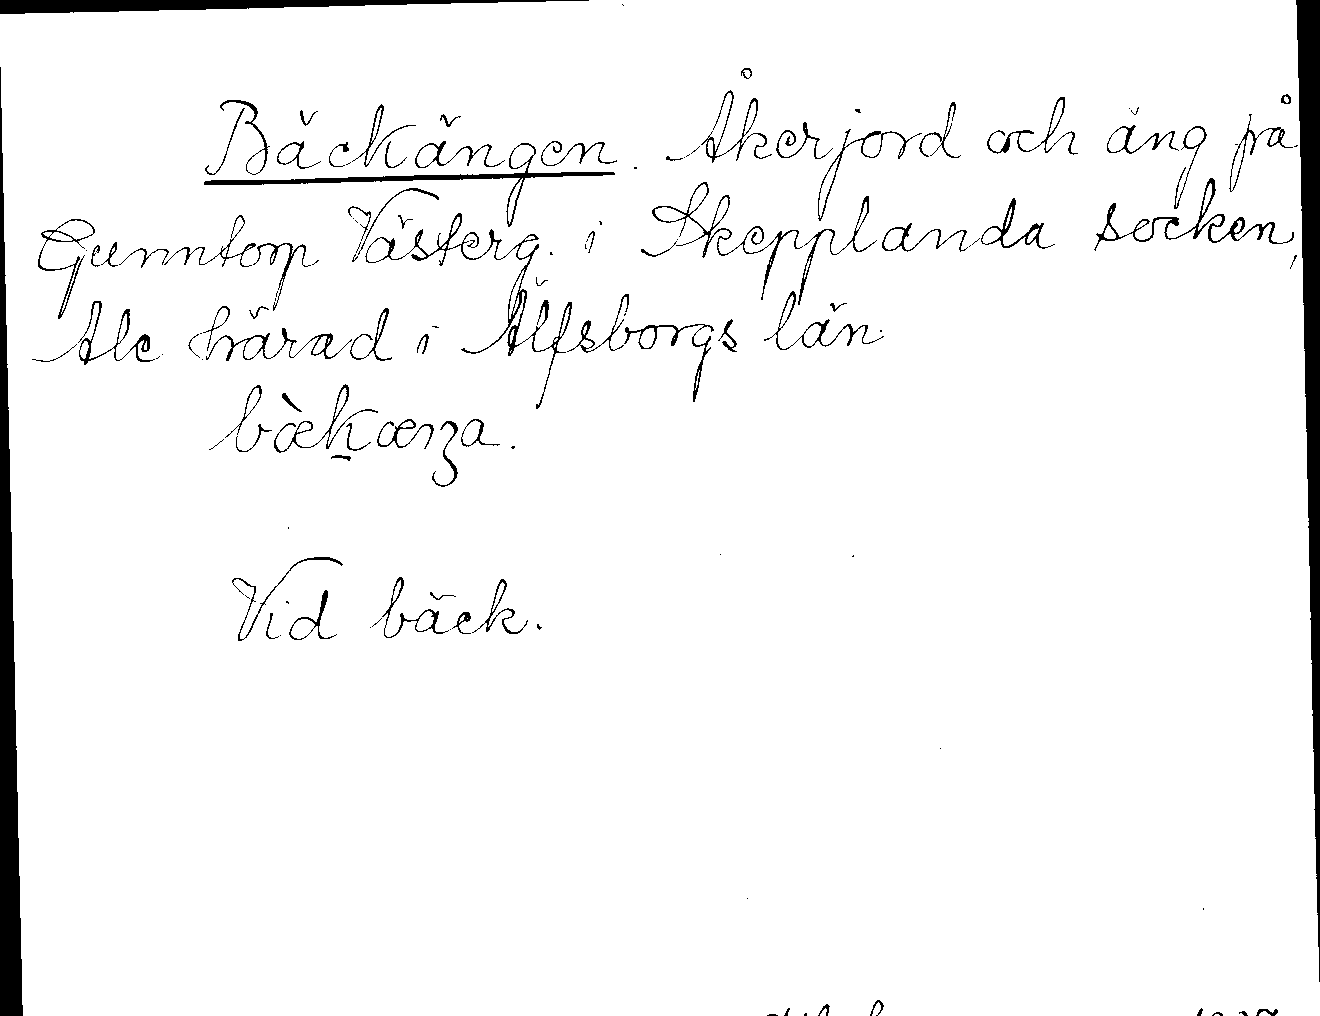 Bäckängen. Åkerjord och äng på
Gunntorp Västerg. i Skepplanda socken,
Ale härad i Älfsborgs län.
bæ̀k̠æŋa.
Vid bäck.